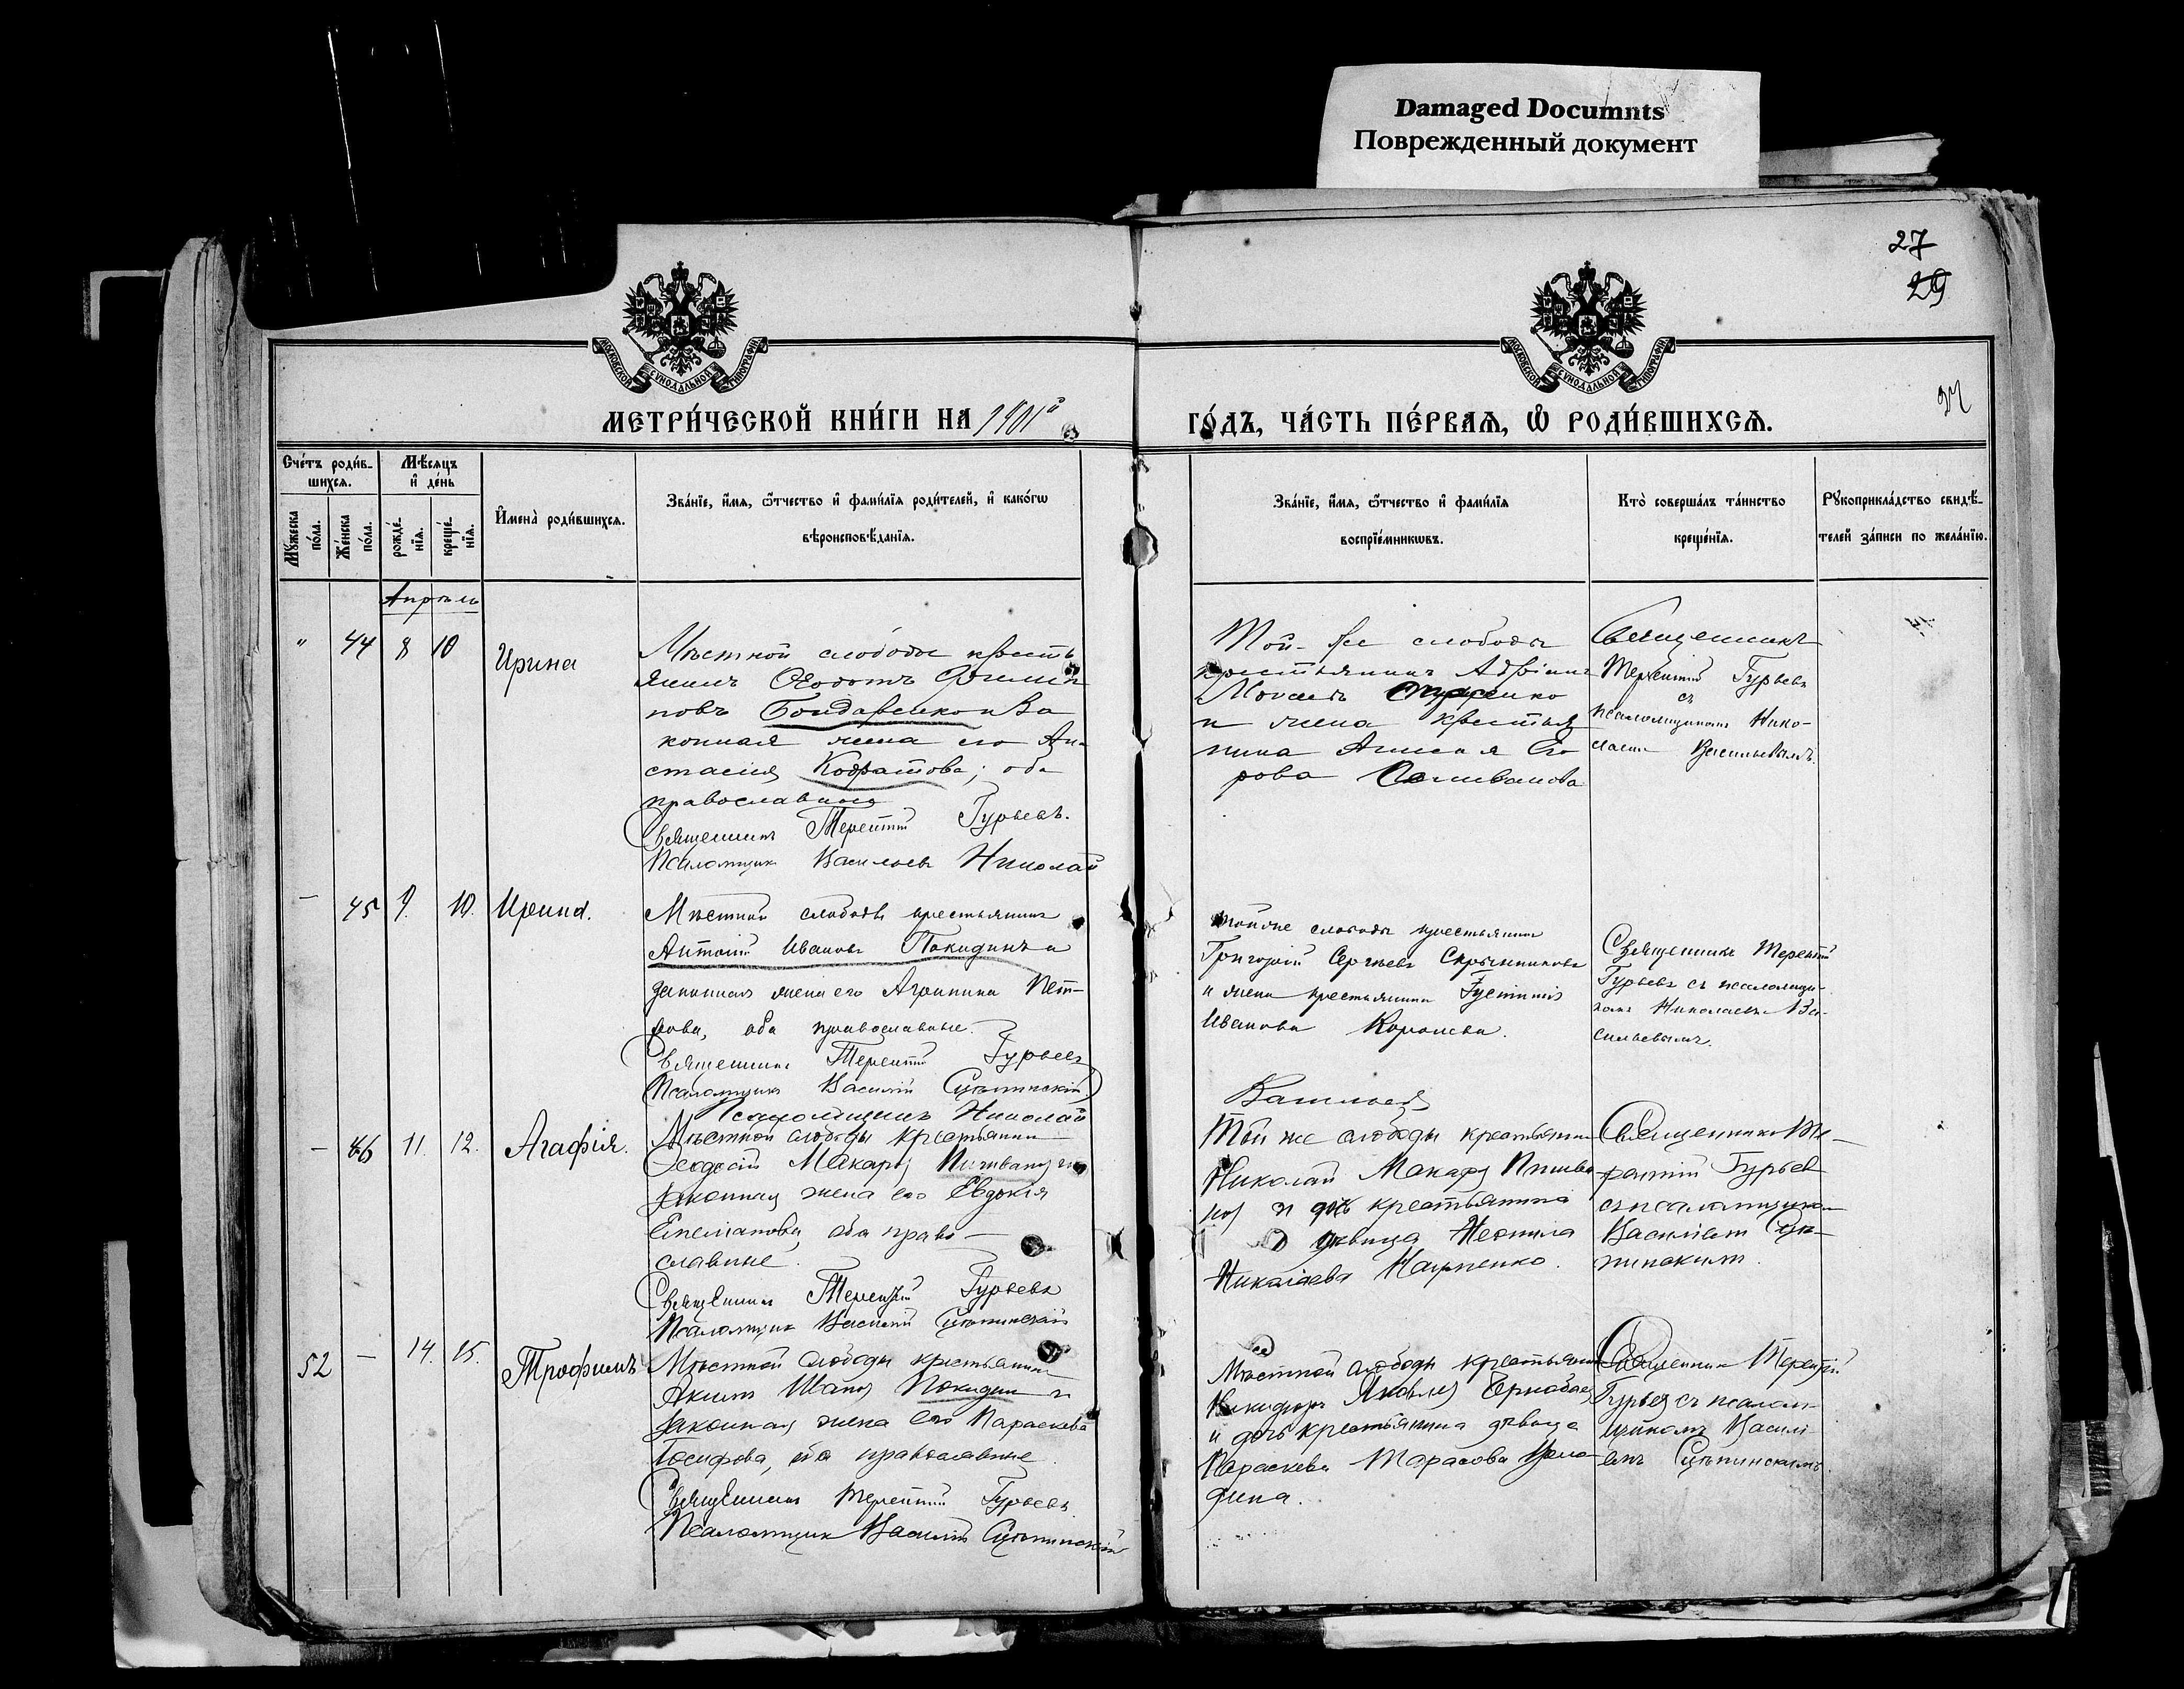 Damaged Documnts
Поврежденный документ
27
29
27
МОСКОВСКОЙ СѴНОДАЛЬНОЙ ТИПОГРАФІИ
МОСКОВСКОЙ СѴНОДАЛЬНОЙ ТИПОГРАФІИ
МЕТРИ́ЧЕСКОЙ КНИ́ГИ НА 1901й
ГО́ДЪ, ЧА́СТЬ ПЕ́РВАѦ, Ѡ҆ РОДИ́ВШИХСѦ.
Сче́тъ роди́в-
шихсѧ.
Мѣ́сѧцъ
и҆ де́нь
Мꙋ́жеска
по́ла.
Же́нска
по́ла.
рожде́-
нїѧ.
креще́-
нїѧ.
И҆мена̀ роди́вшихсѧ.
Зва́нїе, и҆́мѧ, ѻ҆́тчество и҆ фами́лїѧ роди́телей, и҆ како́гѡ
вѣроисповѣ́данїѧ.
Зва́нїе, и҆́мѧ, ѻ҆́тчество и҆ фами́лїѧ
воспрїе́мникѡвъ.
Кто̀ соверша́лъ та́инство
креще́нїѧ.
Рꙋкоприкла́дство свидѣ́-
телей за́писи по жела́нїю.
Апрѣль
" 44 8 10 Ирина
Мѣстной слободы кресть
янинъ Ѳедотъ Филип
повъ Бондаренко и За
конная жена его Ан-
стасія Кодратова; оба
православные
Священникъ Терентій Гурьевъ.
Псаломщикъ Васильевъ Николай
Той-же слободы
крестьянинъ Адріанъ
Моисеевъ
и жена крестья
нина Анисія Его
рова Селиванова
Священникъ
Терентій Гурьевъ
съ
псаломщикомъ Нико-
лаемъ Васильевымъ.
- 45 9. 10. Ирина.
Мѣстной слободы крестьянинъ
Антоній Ивановъ Покидинъ и
законная жена его Агрипина Пет-
рова, оба православные.
Священникъ Терентій Гурьевъ
Псаломщикъ Василій Сцепинскій
Псаломщикъ Николай
Васильевъ
Той же слободы крестьянинъ
Григорій Сергѣевъ Скрынниковъ
и жена крестьянина Іустинія
Иванова Королева.
Священникъ Терентій
Гурьевъ съ псаломщи-
комъ Николаемъ Ва-
сильевымъ.
- 46 11. 12. Агафія.
Мѣстной слободы крестьянинъ
Ѳеодосій Макаровъ Пиливановъ и
законная жена его Евдокія
оба право-
славные.
Священникъ Терентій Гурьевъ
Псаломщикъ Василій Сцепинскій
Той же слободы крестьянинъ
Николай Макаровъ Пилива
новъ и дочь крестьянина
дѣвица Неонила
Николаева Науменко.
Священникъ Те-
рентій Гурьевъ
съ псаломщикомъ
Василіемъ Сце-
пинскимъ.
52 - 14. 15. Трофимъ
Мѣстной слободы крестьянинъ
Акимъ Покидин и
законная жена его Параскева
Іосифова, оба православные.
Священникъ Терентій Гурьевъ
Псаломщикъ Василій Сцепинскій
Мѣстной слободы крестьянинъ
Никифоръ Яковлевъ
и дочь крестьянина дѣвица
Параскева Тарасова
дина.
Священникъ Терентій
Гурьевъ съ псалом-
щикомъ Васили-
емъ Сцепинскимъ.